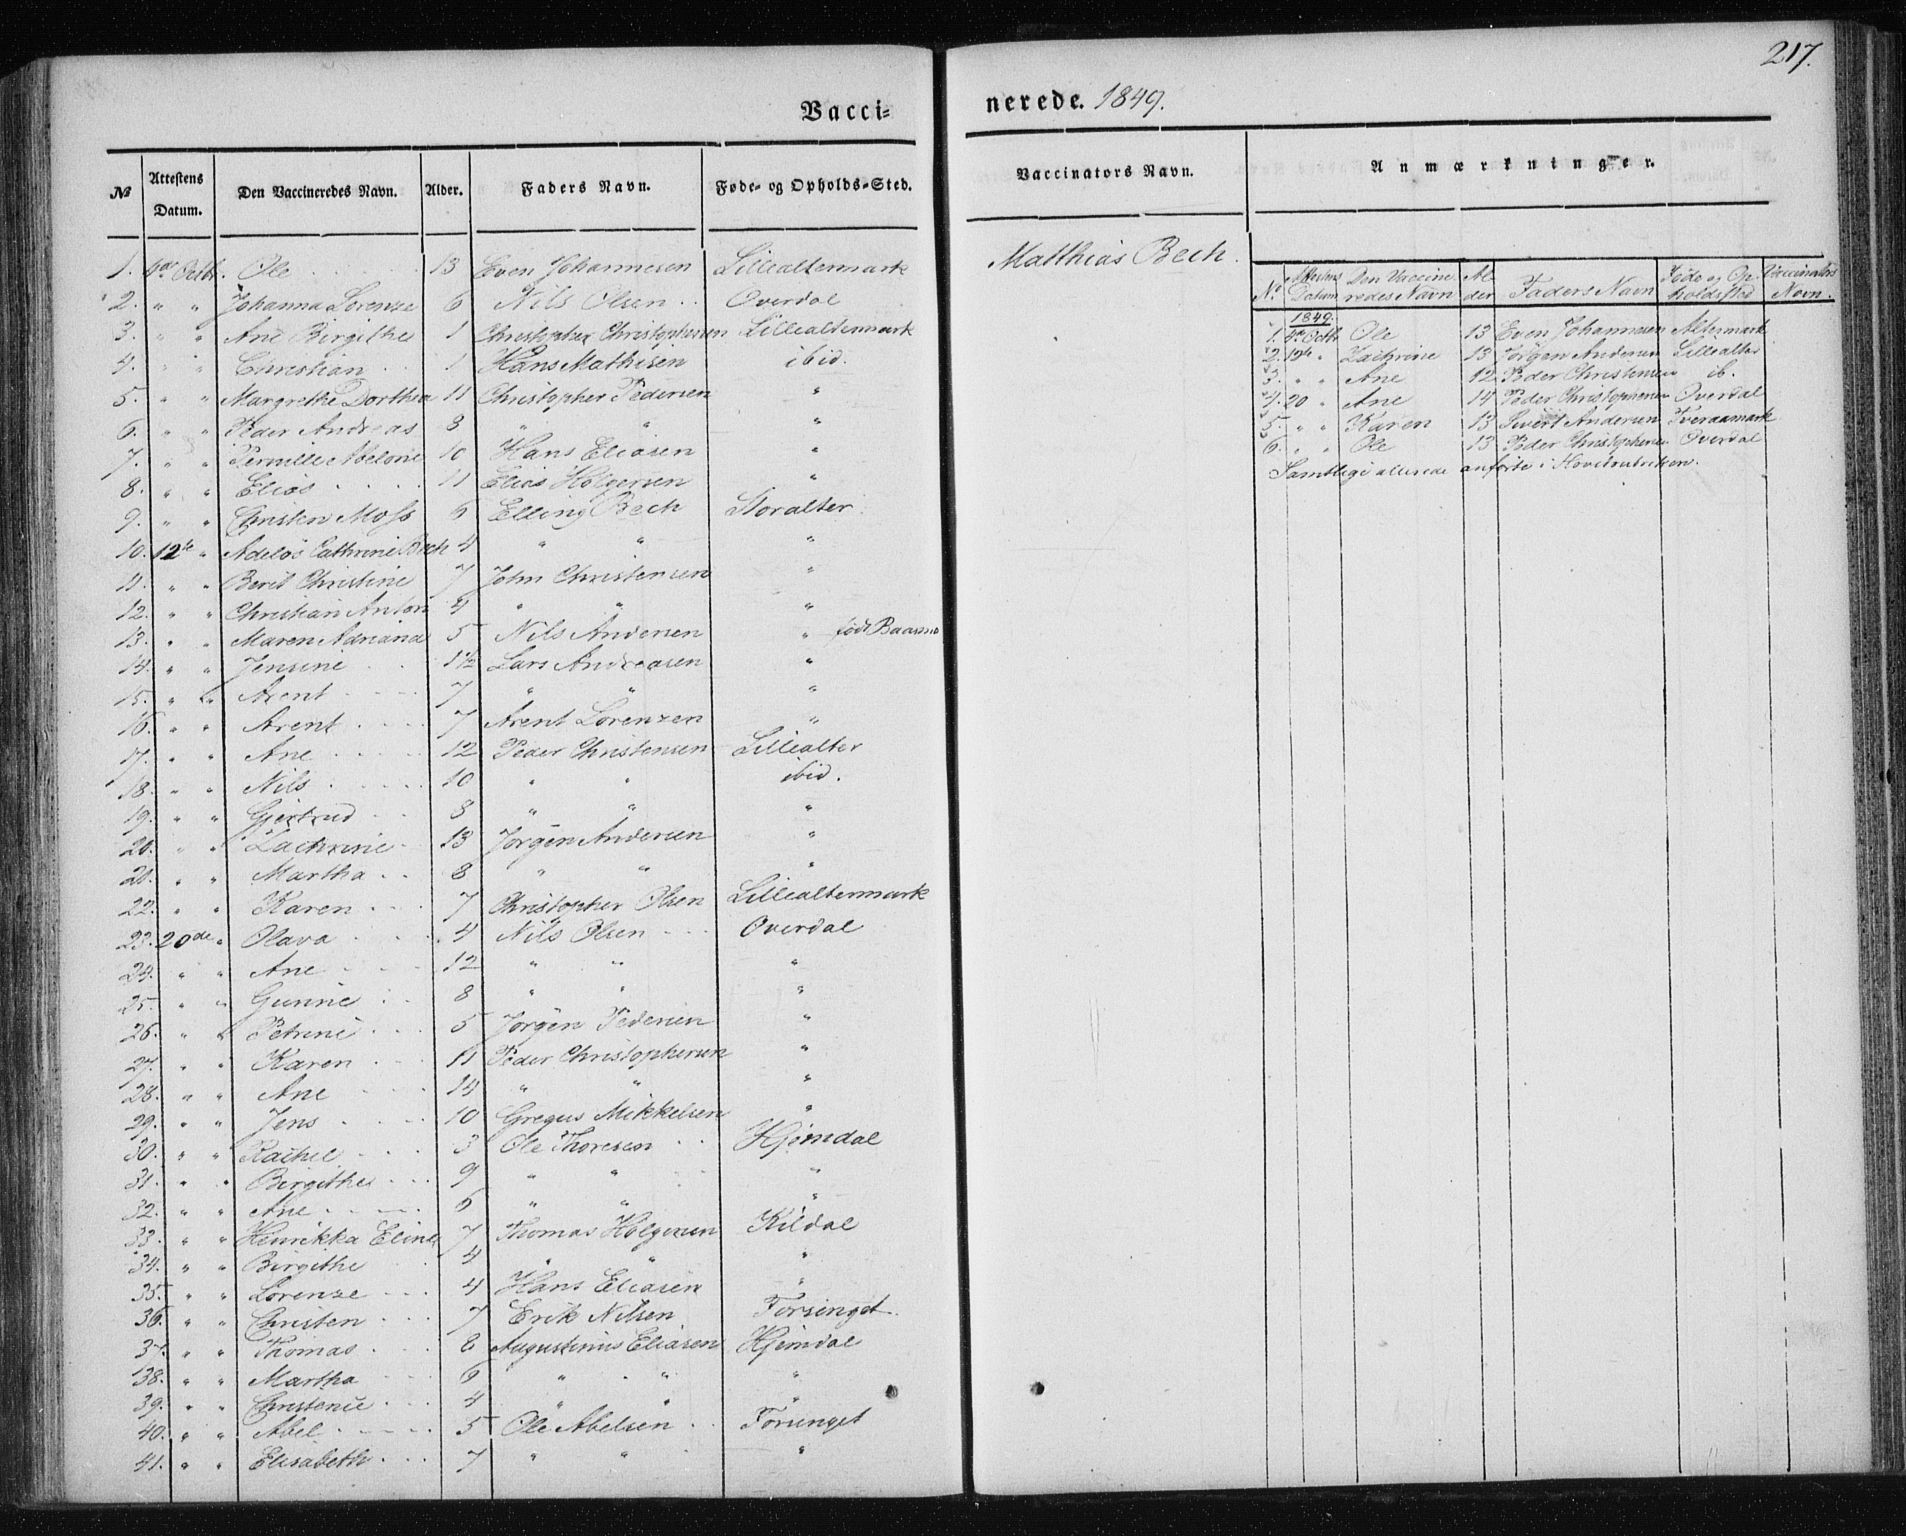 217.
Vacci- nerede. 1849.
№ Attestens Datum. Den Vaccineredes Navn. Alder. Faders Navn. Føde- og Opholds-Sted. Vaccinators Navn. Anmærkninger.
1. 4de Octbr. Ole 13 Even Johannesen Lillealtermark Matthias Bech.
2. " " Johanna Lorenze 6 Nils Olsen Overdal
3. " " Ane Birgithe 1 Christopher Christophersen Lillealtermark
4. " " Christian 1 Hans Mathisen ibid.
5. " " Margrethe Dorthea 11 Christopher Pedersen "
6. " " Peder Andreas 8 " " "
7. " " Pernille Abelone 10 Hans Eliasen "
8. " " Elias 11 Elias Holgersen "
9. " " Christen Moss 6 Elling Bech Storalter.
10. 12te " Adelos Cathrine Bech 4 " " "
11. " " Berit Christine 7 John Christensen "
12. " " Christian Anton 4 " " "
13. " " Maren Adriana 5 Nils Andersen " født
14. " " Jensine 1½ Lars Andreasen "
15. " " Arent 7 " " "
16. " " Arent 7 Arent Lorenzen "
17. " " Ane 12 Peder Christensen Lillealter
18. " " Nils 10 " " ibid.
19. " " Gjertrud 8 " " "
20. " " Zachrine 13 Jørgen Andersen "
21. " " Martha 8 " " "
22. " " Karen 7 Christopher Olsen Lillealtermark
23. 20de " Olava 4 Nils Olsen Overdal
24. " " Ane 12 " " "
25. " " Gunnie 8 " " "
26. " " Petrine 5 Jørgen Pedersen "
27. " " Karen 11 Peder Christophersen "
28. " " Ane 14 " " "
29. " " Jens 10 Gregus Mikkelsen "
30. " " Rachel 3 Ole Thoresen Hjemdal
31. " " Birgithe 9 " " "
32. " " Ane 6 " " "
33. " " Henrikka Eline 7 Thomas Holgersen Kildal
34. " " Birgithe 4 " " "
35. " " Lorenze 4 Hans Eliasen "
36. " " Christen 7 Erik Nilsen Forsenget.
37. " " Thomas 8 Augustinus Eliasen Hjemdal
38. " " Martha 6 " " "
39. " " Christense 4 " " "
40. " " Abel 5 Ole Abelsen Forsenget
41. " " Elisabeth 7 " " "
No Attestens Datum Den Vaccineredes Navn Alder Faders Navn Føde og Opholdsted Vaccinators Navn.
1849.
1. 4de Octbr Ole 13 Even Johannesen Altermark
2. 12te " Zachrine 13 Jørgen Andersen Lillealter
3. " " Ane 12 Peder Christensen ib.
4. 20 " Ane 14 Peder Christophersen Overdal
5. " " Karen 13 Sivert Andersen Tveraamark
6. " " Ole 13 Peder Christophersen Overdal
Samtlige allerede anførte i Hovedrubriken.